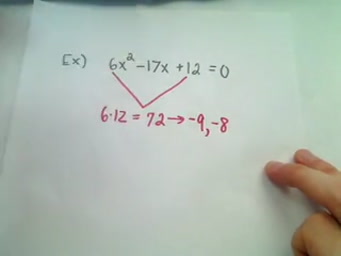 Ex) 6x² -17x +12 = 0
6·12 = 72 → -9, -8